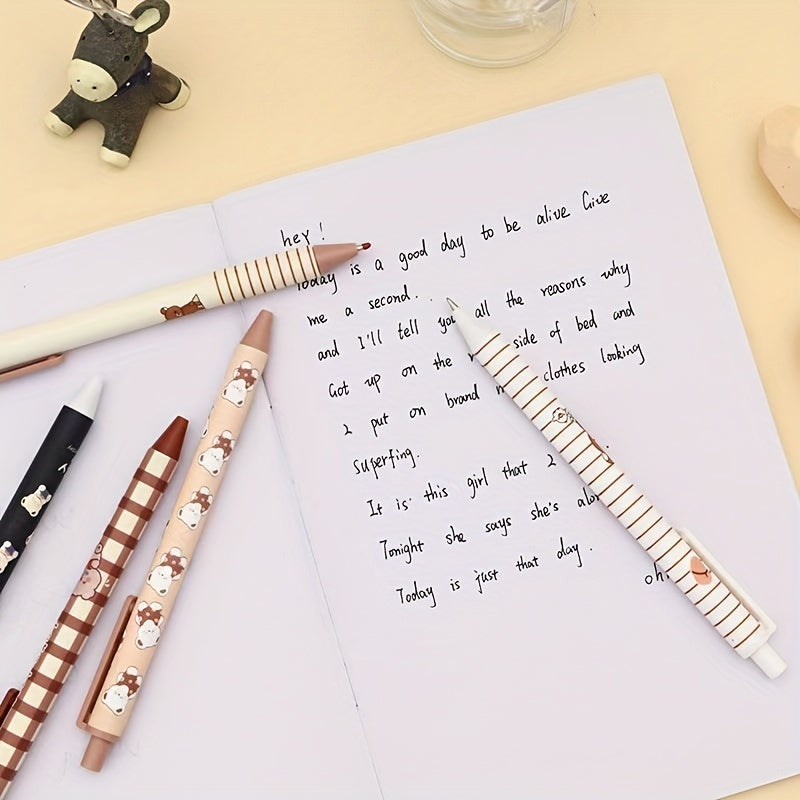 hey!
Today is a good day to be alive Give
me a second.
and I'll tell you all the reasons why
Got up on the side of bed and
2 put on brand clothes looking
superfing.
It is this girl that 2
Tonight she says she's
Today is just that day.
oh